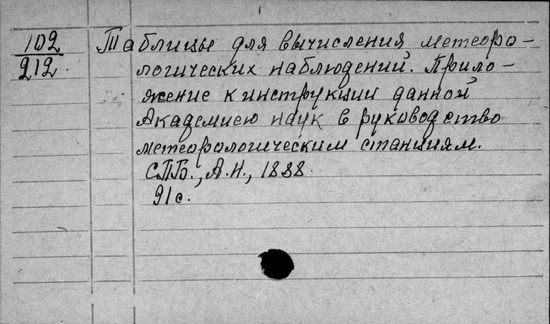 102 Таблицы для вычисления метеоро-
212. логических наблюдений. Прило-
жение к инструкции данной
Академиею наук в руководство
метеорологическим станциям.
СПБ., А.Н., 1888.
91с.